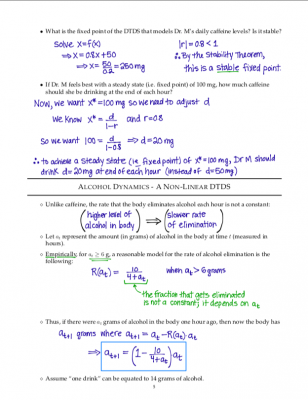 • What is the fixed point of the DTDS that models Dr. M's daily caffeine levels? Is it stable?
solve x=f(x)
⇒ x=0.8x+50
⇒ x = 50/0.2 = 250mg
|r| = 0.8 < 1
∴ By the Stability Theorem,
this is a stable fixed point.
• If Dr. M feels best with a steady state (i.e. fixed point) of 100 mg, how much caffeine
should she be drinking at the end of each hour?
Now, we want x*=100mg so we need to adjust d
We know x* = d/1-r and r=0.8
So we want 100 = d/1-0.8 ⇒ d=20mg
∴ to achieve a steady state (ie. fixed point) of x*=100mg, Dr M should
drink d=20mg at end of each hour (instead of d=50mg)
ALCOHOL DYNAMICS - A NON-LINEAR DTDS
○ Unlike caffeine, the rate that the body eliminates alcohol each hour is not a constant:
(higher level of alcohol in body) ⇒ (slower rate of elimination)
○ Let aₜ represent the amount (in grams) of alcohol in the body at time t (measured in
hours).
○ Empirically, for aₜ ≥ 6 g, a reasonable model for the rate of alcohol elimination is the
following:
R(aₜ) = 10/4+aₜ when aₜ > 6 grams
the fraction that gets eliminated
is not a constant; it depends on aₜ
○ Thus, if there were aₜ grams of alcohol in the body one hour ago, then now the body has
aₜ₊₁ grams where aₜ₊₁ = aₜ - R(aₜ)·aₜ
⇒ aₜ₊₁ = (1 - 10/4+aₜ) aₜ
○ Assume "one drink" can be equated to 14 grams of alcohol.